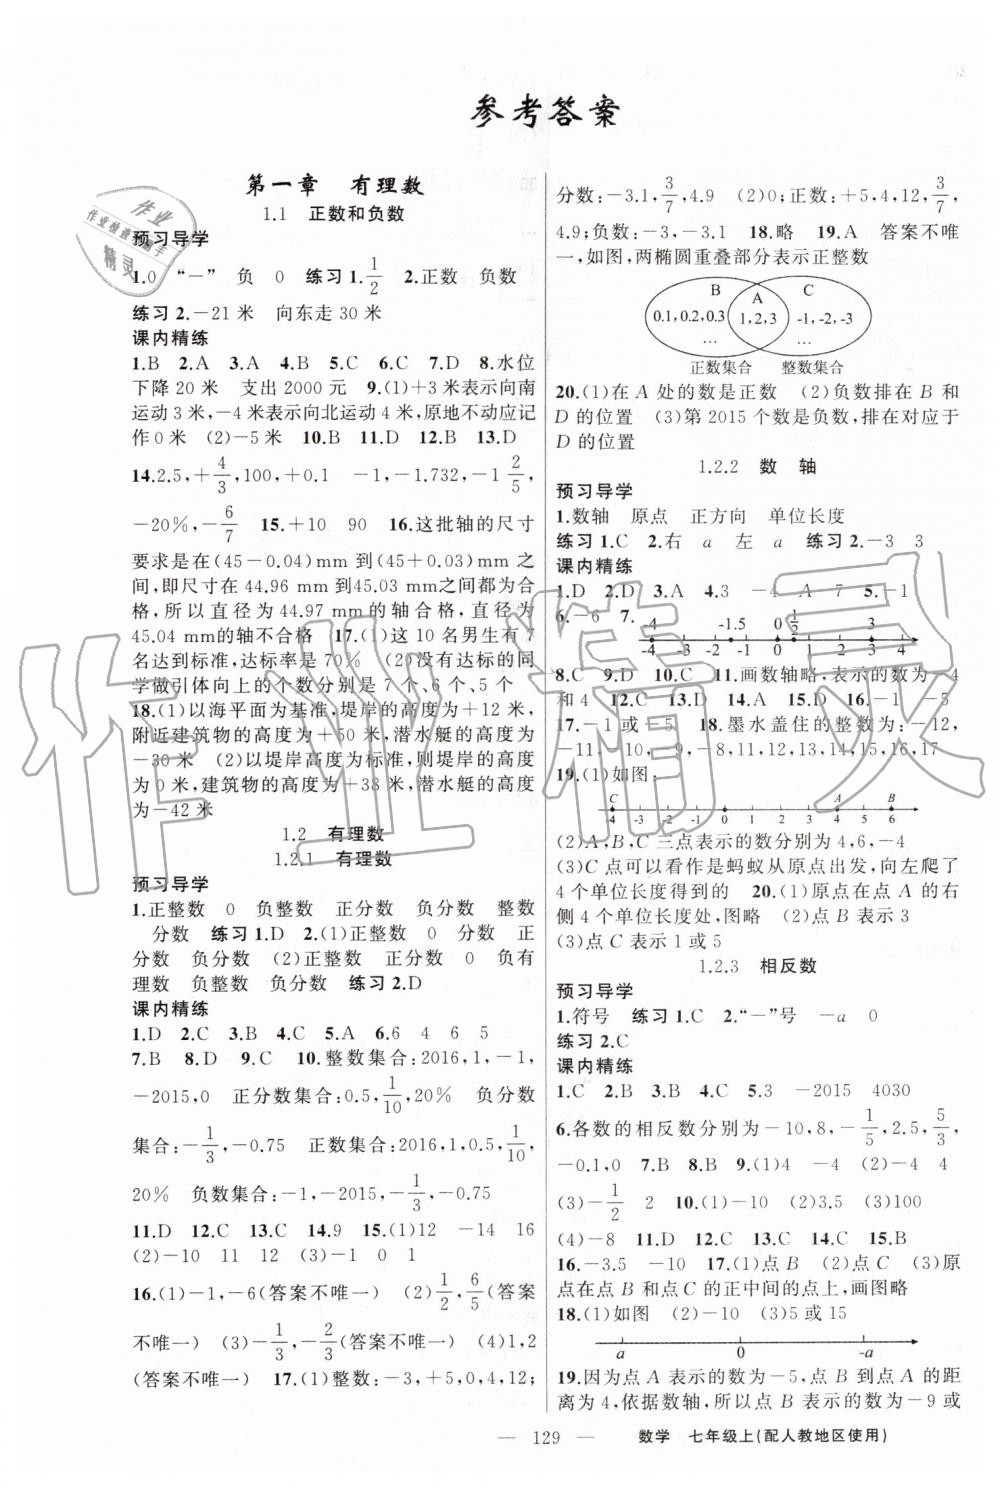 参考答案
第一章 有理数
1.1 正数和负数
预习导学
1.0 “－” 负 0 练习1.1/2 2.正数 负数
练习2.－21米 向东走30米
课内精练
1.B 2.A 3.A 4.B 5.C 6.C 7.D 8.水位
下降20米 支出2000元 9.(1)＋3米表示向南
运动3米,－4米表示向北运动4米,原地不动应记
作0米 (2)－5米 10.B 11.D 12.B 13.D
14.2.5,＋4/3,100,＋0.1 －1,－1.732,－1 2/5,
－20%,－6/7 15.＋10 90 16.这批轴的尺寸
要求是在(45－0.04) mm到(45＋0.03) mm之
间,即尺寸在44.96 mm到45.03 mm之间都为合
格,所以直径为44.97 mm的轴合格,直径为
45.04 mm的轴不合格 17.(1)这10名男生有7
名达到标准,达标率是70% (2)没有达标的同
学做引体向上的个数分别是7个、6个、5个
18.(1)以海平面为基准,堤岸的高度为＋12米,
附近建筑物的高度为＋50米,潜水艇的高度为
－30米 (2)以堤岸高度为标准,则堤岸的高度
为0米,建筑物的高度为＋38米,潜水艇的高度
为－42米
1.2 有理数
1.2.1 有理数
预习导学
1.正整数 0 负整数 正分数 负分数 整数
分数 练习1.D 2.(1)正整数 0 分数 正
分数 负分数 (2)正整数 正分数 0 负有
理数 负整数 负分数 练习2.D
课内精练
1.D 2.C 3.B 4.C 5.A 6.6 4 6 5
7.B 8.D 9.C 10.整数集合:2016,1,－1,
－2015,0 正分数集合:0.5,1/10,20% 负分数
集合:－1/3,－0.75 正数集合:2016,1,0.5,1/10,
20% 负数集合:－1,－2015,－1/3,－0.75
11.D 12.C 13.C 14.9 15.(1)12 －14 16
(2)－10 11 12 (3)－1 0 1
16.(1)－1,－6(答案不唯一) (2)1/2,6/5(答案
不唯一) (3)－1/3,－2/3(答案不唯一) (4)1,2
(答案不唯一) 17.(1)整数:－3,＋5,0,4,12;
分数:－3.1,3/7,4.9 (2)0;正数:＋5,4,12,3/7,
4.9;负数:－3,－3.1 18.略 19.A 答案不唯
一,如图,两椭圆重叠部分表示正整数
B A C
0.1,0.2,0.3 1,2,3 -1,-2,-3
… … …
正数集合 整数集合
20.(1)在A处的数是正数 (2)负数排在B和
D的位置 (3)第2015个数是负数,排在对应于
D的位置
1.2.2 数 轴
预习导学
1.数轴 原点 正方向 单位长度
练习1.C 2.右 a 左 a 练习2.－3 3
课内精练
1.D 2.D 3.A 4.3 －4 A 7 5.－1
6.－6 7.
-4 -1.5 0 1/2 3
-4 -3 -2 -1 0 1 2 3 4
8.C 9.D 10.C 11.画数轴略,表示的数为－4
和4 12.C 13.D 14.A 15.D 16.－1 －5
17.－1或－5 18.墨水盖住的整数为:－12,
－11,－10,－9,－8,11,12,13,14,15,16,17
19.(1)如图:
C A B
-4 -3 -2 -1 0 1 2 3 4 5 6
(2)A,B,C三点表示的数分别为4,6,－4
(3)C点可以看作是蚂蚁从原点出发,向左爬了
4个单位长度得到的 20.(1)原点在点A的右
侧4个单位长度处,图略 (2)点B表示3
(3)点C表示1或5
1.2.3 相反数
预习导学
1.符号 练习1.C 2.“－”号 －a 0
练习2.C
课内精练
1.C 2.B 3.B 4.C 5.3 －2015 4030
6.各数的相反数分别为－10,8,－1/5,2.5,5/3,
－0.1,0 7.B 8.B 9.(1)4 －4 (2)－4 4
(3)－1/2 2 10.(1)－10 (2)3.5 (3)100
(4)－8 11.D 12.C 13.C 14.C 15.B
16.－3.5 －10 17.(1)点B (2)点C (3)原
点在点B和点C的正中间的点上,画图略
18.(1)如图 (2)－10 (3)5或15
a 0 -a
19.因为点A表示的数为－5,点B到点A的距
离为4,依据数轴,所以点B表示的数为－9或
— 129 — 数学 七年级上(配人教地区使用)
作业
作业检查小助手
精灵
作业精灵